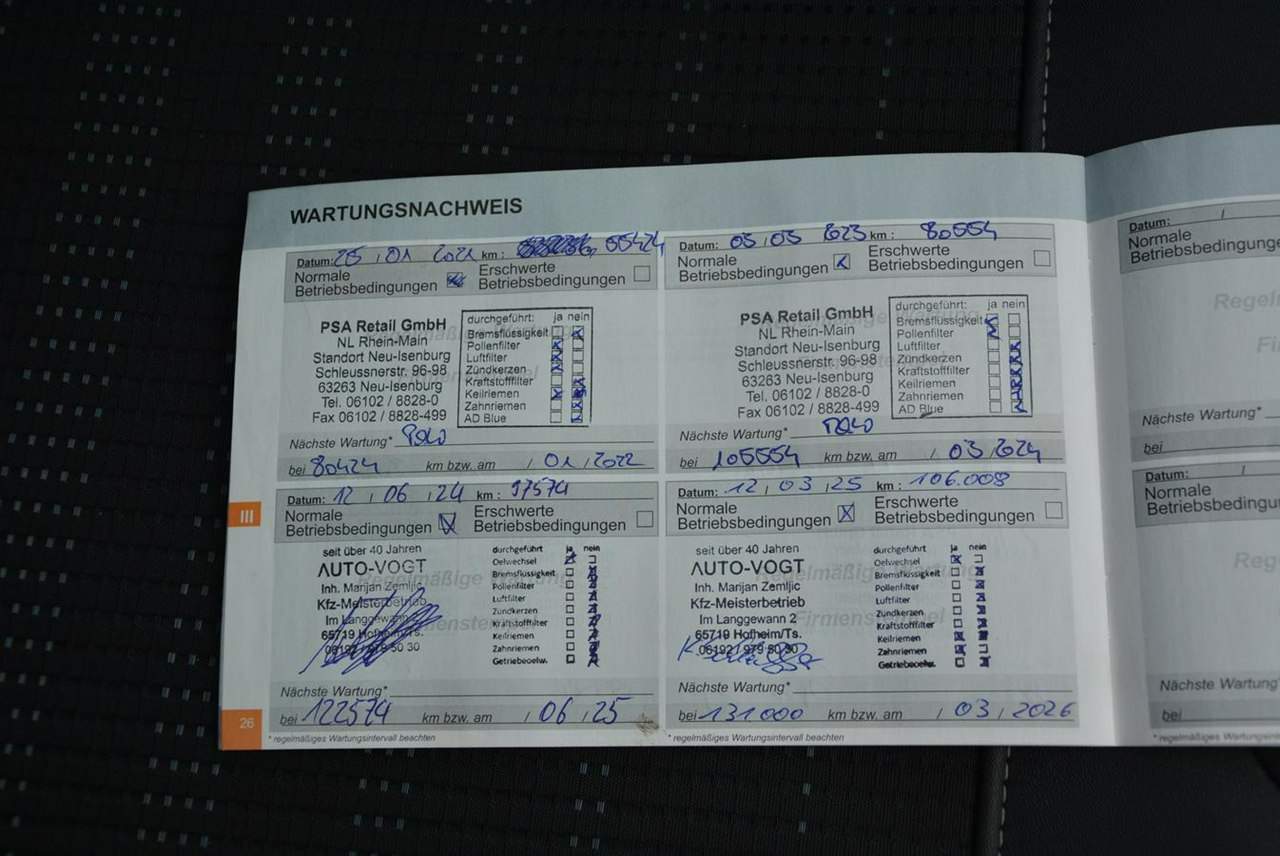 WARTUNGSNACHWEIS
Datum: 25 / 01 2021 km: 55424
Normale Betriebsbedingungen
Erschwerte Betriebsbedingungen
PSA Retail GmbH
NL Rhein-Main
Standort Neu-Isenburg
Schleussnerstr. 96-98
63263 Neu-Isenburg
Tel. 06102 / 8828-0
Fax 06102 / 8828-499
durchgeführt: ja nein
Bremsflüssigkeit
Pollenfilter
Luftfilter
Zündkerzen
Kraftstofffilter
Keilriemen
Zahnriemen
AD Blue
Nächste Wartung*
bei 80424 km bzw. am / 01 / 2022
Datum: 03 / 03 2023 km: 80554
Normale Betriebsbedingungen
Erschwerte Betriebsbedingungen
PSA Retail GmbH
NL Rhein-Main
Standort Neu-Isenburg
Schleussnerstr. 96-98
63263 Neu-Isenburg
Tel. 06102 / 8828-0
Fax 06102 / 8828-499
durchgeführt: ja nein
Bremsflüssigkeit
Pollenfilter
Luftfilter
Zündkerzen
Kraftstofffilter
Keilriemen
Zahnriemen
AD Blue
Nächste Wartung*
bei 105554 km bzw. am / 03 / 2024
III
Datum: 12 / 06 / 24 km: 97574
Normale Betriebsbedingungen
Erschwerte Betriebsbedingungen
seit über 40 Jahren
AUTO-VOGT
Inh. Marijan Zemljic
Kfz-Meisterbetrieb
Im Langgewann
65719 Hofheim/Ts.
06192 / 979 50 30
durchgeführt ja nein
Oelwechsel
Bremsflüssigkeit
Pollenfilter
Luftfilter
Zündkerzen
Kraftstofffilter
Keilriemen
Zahnriemen
Getriebeoelw.
Nächste Wartung*
bei 122574 km bzw. am / 06 / 25
Datum: 12 / 03 / 25 km: 106.008
Normale Betriebsbedingungen
Erschwerte Betriebsbedingungen
seit über 40 Jahren
AUTO-VOGT
Inh. Marijan Zemljic
Kfz-Meisterbetrieb
Im Langgewann 2
65719 Hofheim/Ts.
06192 / 979 50 30
durchgeführt ja nein
Oelwechsel
Bremsflüssigkeit
Pollenfilter
Luftfilter
Zündkerzen
Kraftstofffilter
Keilriemen
Zahnriemen
Getriebeoelw.
Nächste Wartung*
bei 131000 km bzw. am / 03 / 2026
26
* regelmäßiges Wartungsintervall beachten
* regelmäßiges Wartungsintervall beachten
Datum: /
Normale
Betriebsbedingunge
Nächste Wartung*
bei
Datum: /
Normale
Betriebsbedingu
Nächste Wartung*
bei
* regelmäßiges Wartung